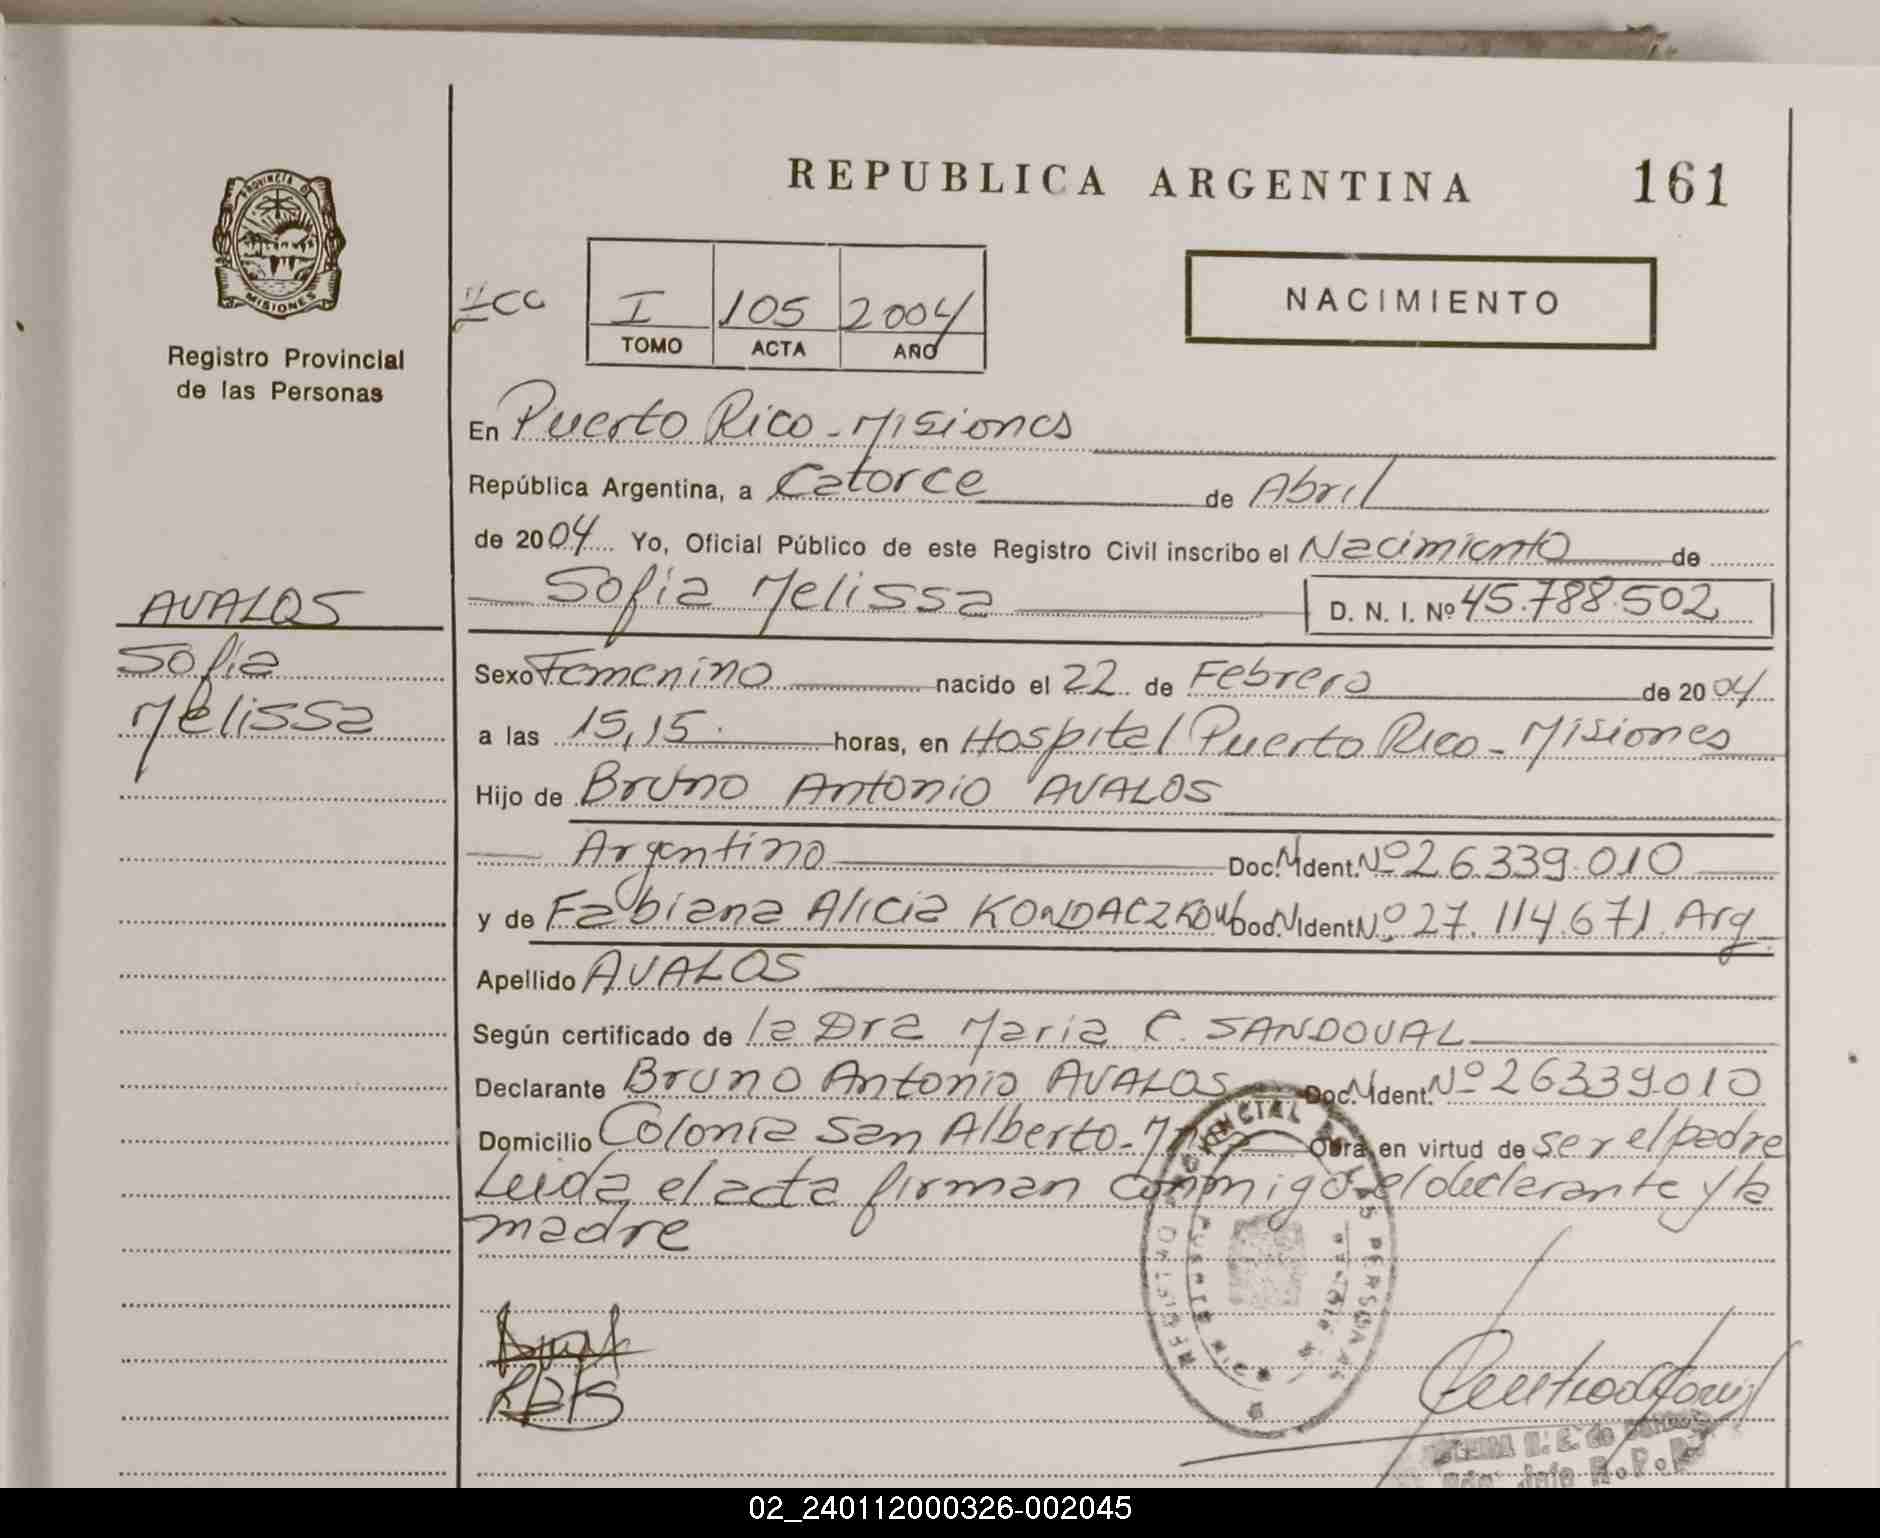 REPUBLICA ARGENTINA 161
PROVINCIA D
MISIONES
Registro Provincial
de las Personas
I 105 2004
TOMO ACTA AÑO
NACIMIENTO
En Puerto Rico - Misiones
República Argentina, a Catorce de Abril
de 2004 Yo, Oficial Público de este Registro Civil inscribo el Nacimiento de
Sofia Melissa D. N. I. Nº 45.788.502
AVALOS
Sofia
Melissa
Sexo Femenino nacido el 22 de Febrero de 2004
a las 15,15 horas, en Hospital Puerto Rico - Misiones
Hijo de Bruno Antonio AVALOS
Argentino Doc. N Ident. Nº 26.339.010
y de Fabiana Alicia Doc. N Ident Nº 27.114.671 Arg
Apellido AVALOS
Según certificado de la Dra Maria C. SANDOVAL
Declarante Bruno Antonio AVALOS Doc. N Ident. Nº 26339.010
Domicilio Colonia San Alberto - Obra en virtud de ser el padre
Leida el acta firman conmigo el declarante y la
madre
02_240112000326-002045